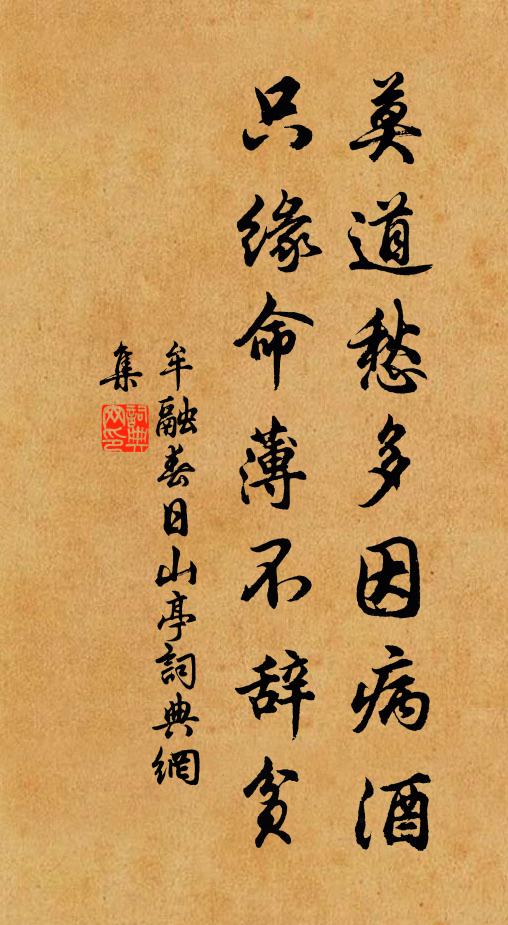 莫道愁多因病酒
只缘命薄不辞贫
牟融春日山亭詞典網
集
詞典
网印